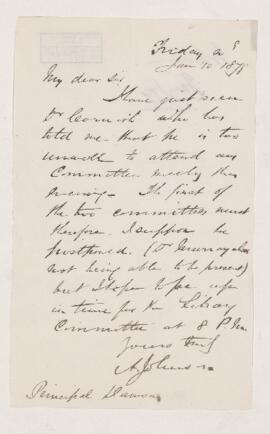 Friday
Jan 10 1879
My dear Sir
I have just seen
Dr Cornish who has
told me that he is too
unwell to attend any
Committee meeting this
evening. The first of
the two committees must
therefore I suppose be
postponed. (Dr Murray also
not being able to be present)
but I hope to be up
in time for the Library
Committee at 8 P.M.
Yours truly
A Johnson
Principal Dawson